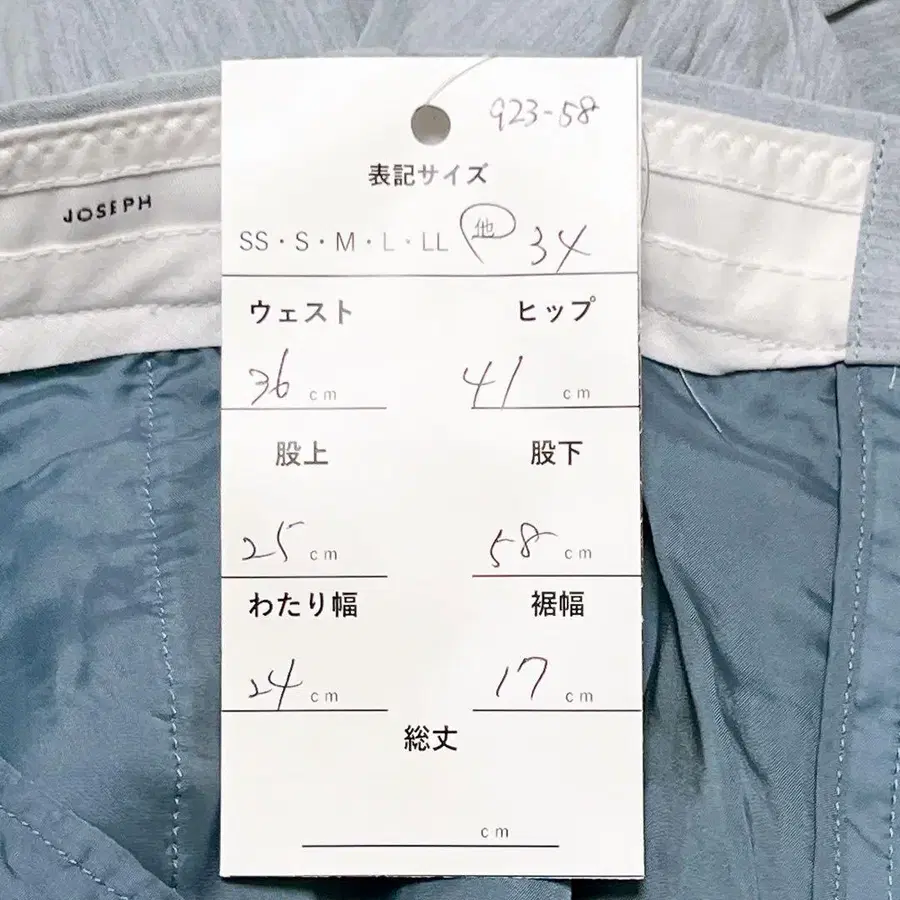 923-58
表記サイズ
JOSEPH
SS・S・M・L・LL 他 34
ウェスト ヒップ
36 cm 41 cm
股上 股下
25 cm 58 cm
わたり幅 裾幅
24 cm 17 cm
総丈
cm